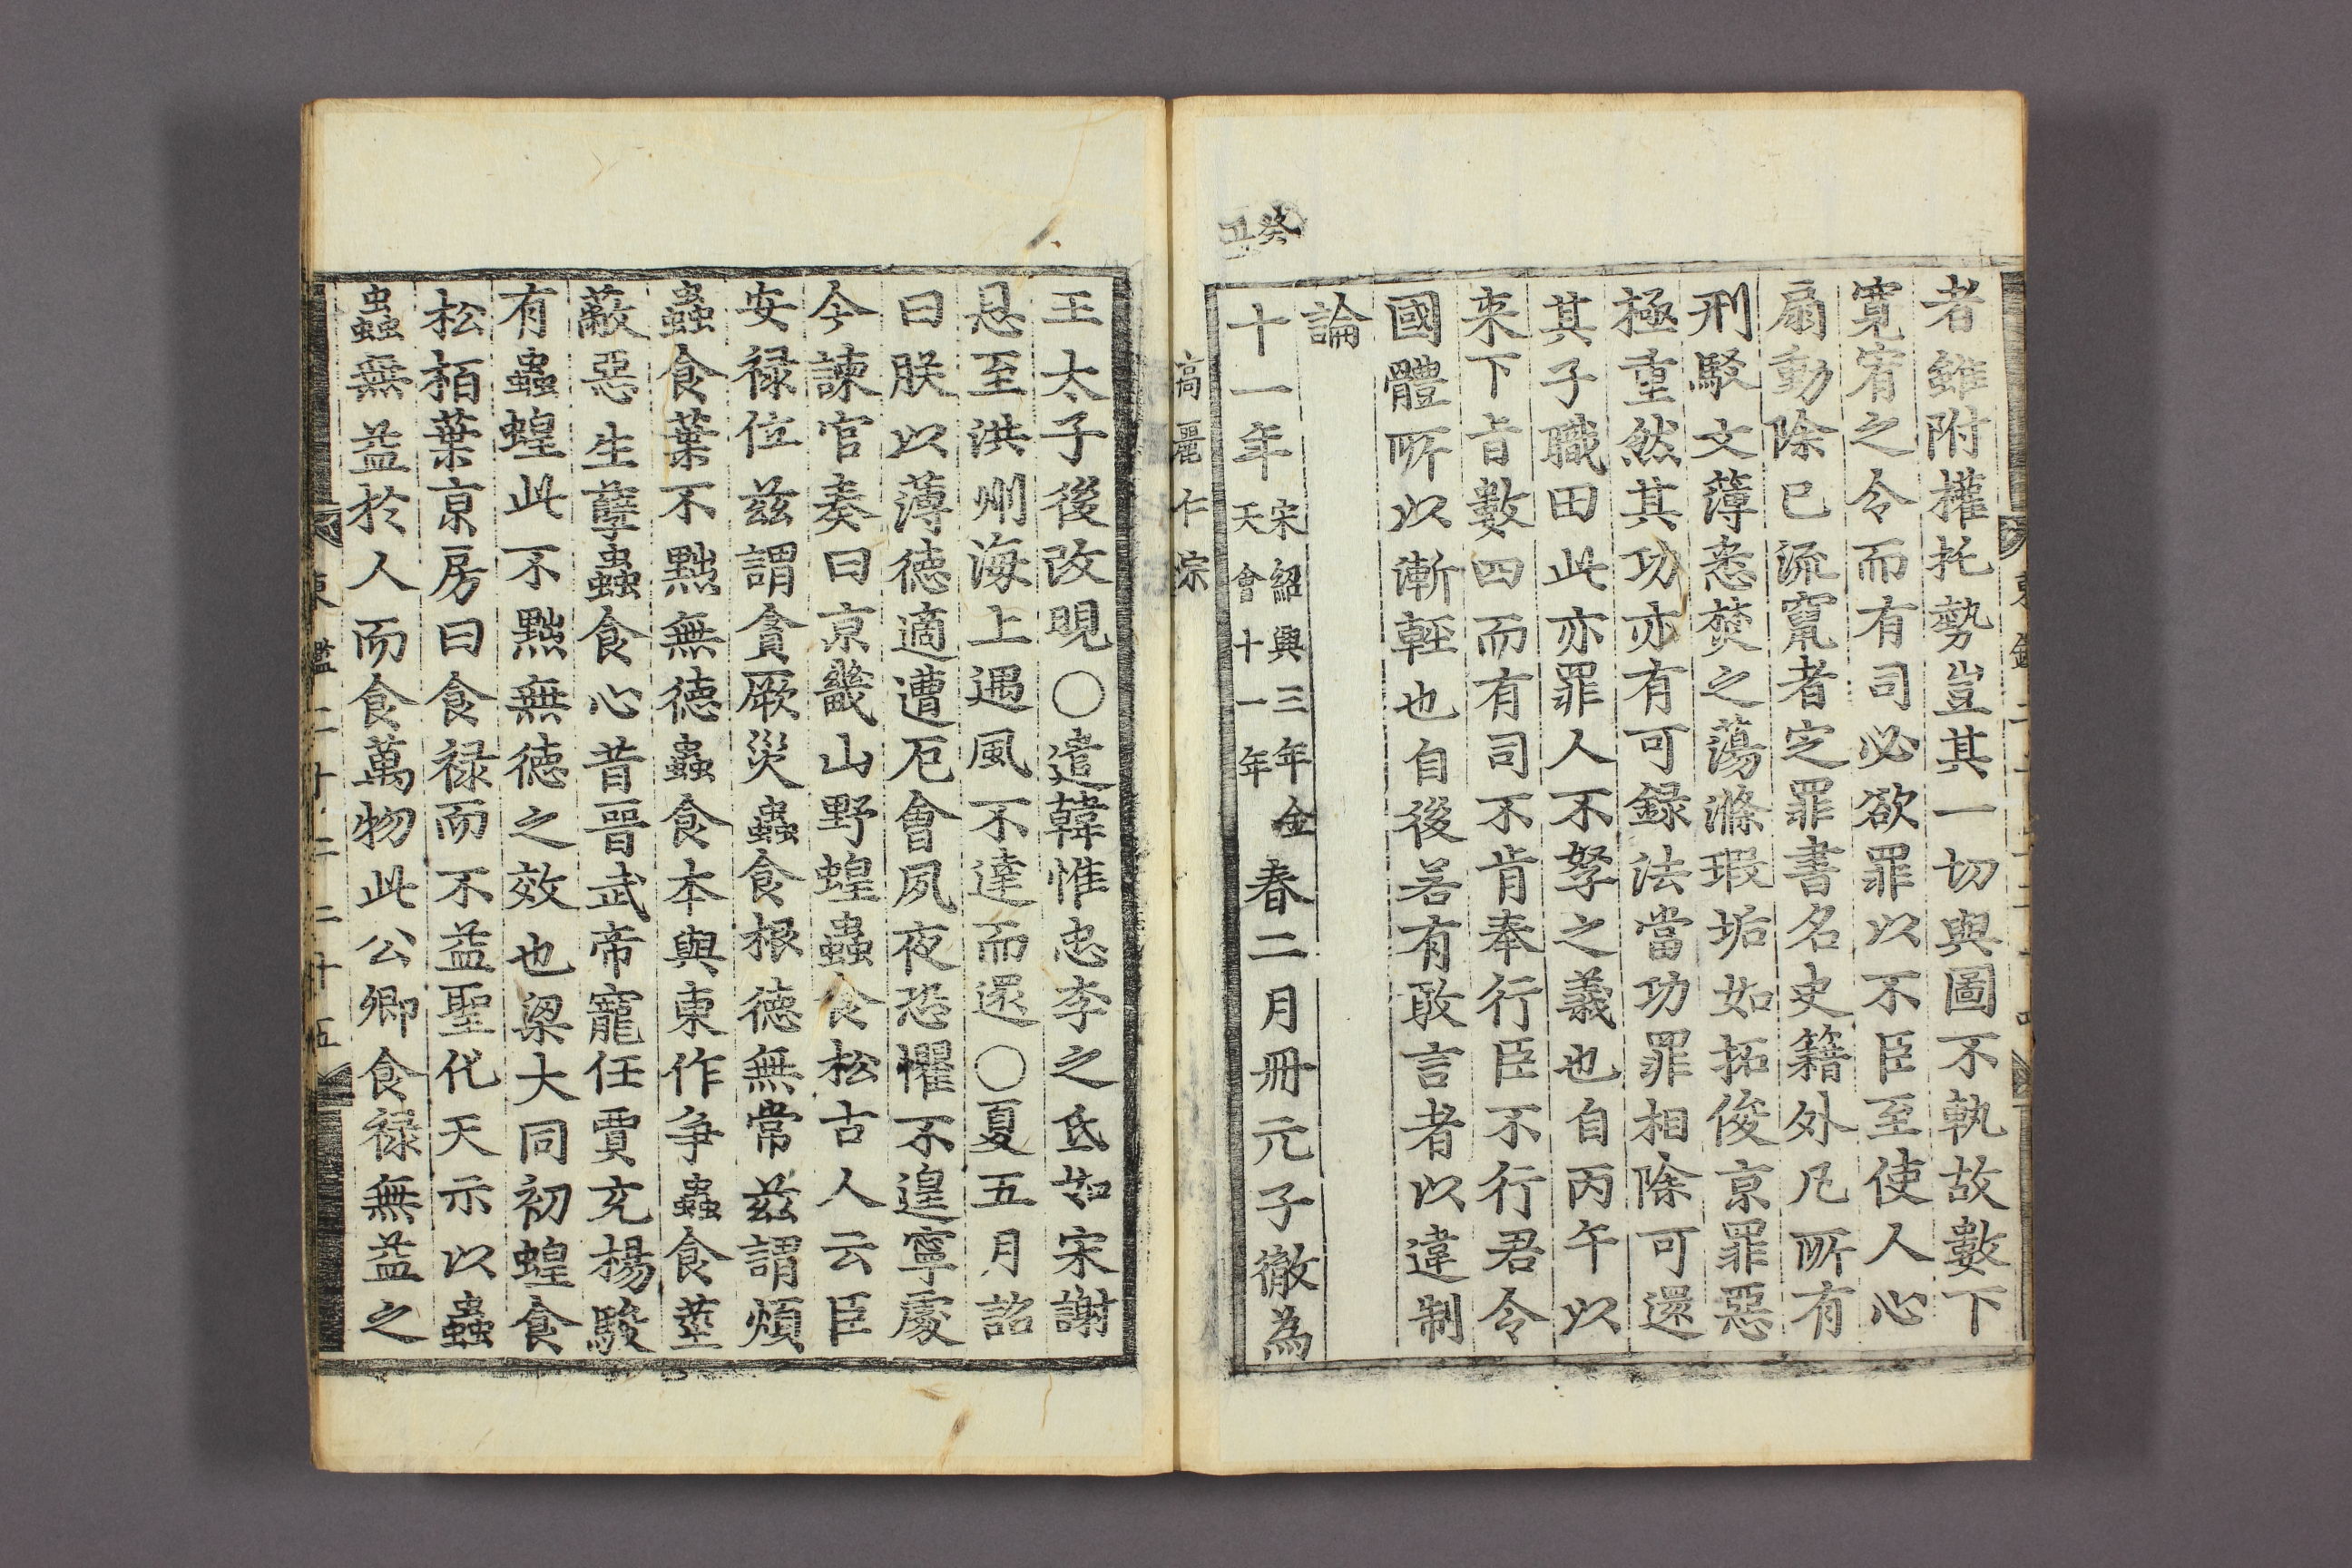 者雖附權托勢豈其一切與圖不軌故數下
寬宥之令而有司必欲罪以不臣至使人心
扇動除已流竄者定罪書名史籍外凡所有
刑駁文薄悉焚之蕩滌瑕垢如拓俊京罪惡
極重然其功亦有可録法當功罪相除可還
其子職田此亦罪人不孥之義也自丙午以
来下旨數四而有司不肯奉行臣不行君令
國體所以漸輊也自後若有敢言者以違制
論
癸丑
十一年宋紹興三年金天會十一年春二月冊元子徹為
高麗仁宗
王太子後改晛○遣韓惟忠李之氐如宋謝
恩至洪州海上遇風不達而還○夏五月詔
曰朕以薄德適遭厄會夙夜恐懼不遑寧處
今諫官奏曰京畿山野蝗蟲食松古人云臣
安禄位兹謂貪厥災蟲食根德無常兹謂煩
蟲食葉不黜無德蟲食本與東作争蟲食莖
蔽惡生孽蟲食心昔晉武帝寵任賈充楊駿
有蟲蝗此不黜無德之效也梁大同初蝗食
松栢葉京房曰食禄而不益聖化天示以蟲
蟲無益於人而食萬物此公卿食禄無益之
東鑑二十二 二十五